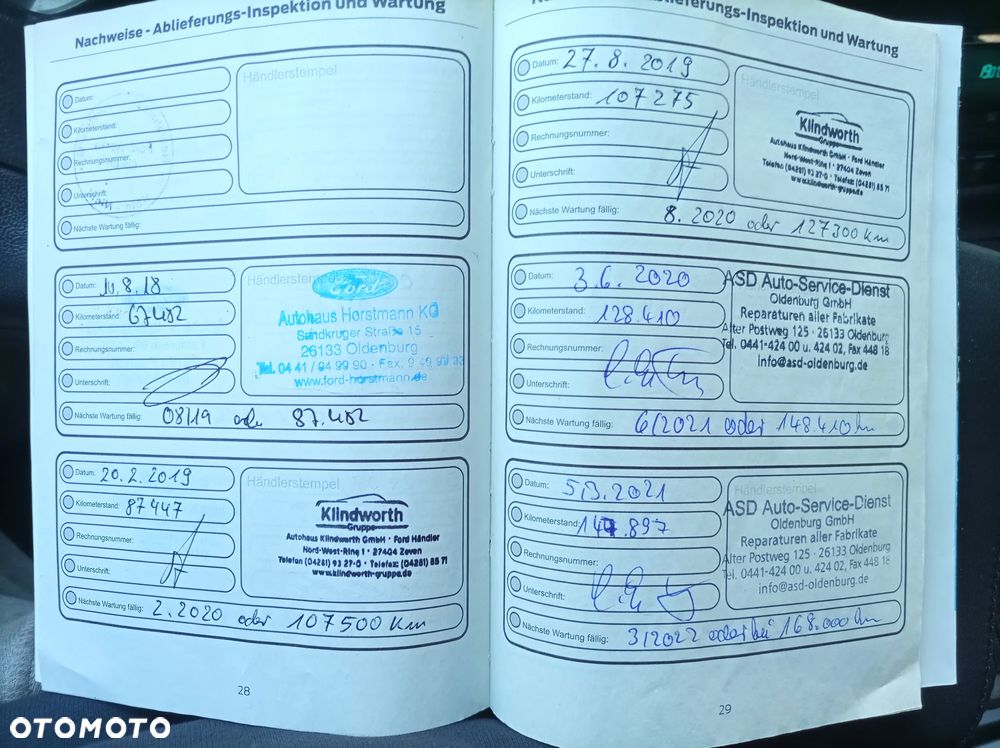 Nachweise - Ablieferungs-Inspektion und Wartung
Datum:
Kilometerstand:
Rechnungsnummer:
Unterschrift:
Nächste Wartung fällig:
Händlerstempel
Datum: 10.8.18
Kilometerstand: 67482
Rechnungsnummer:
Unterschrift:
Nächste Wartung fällig: 08/19 oder 87.482
Händlerstempel
Ford
Autohaus Horstmann KG
Sandkruger Straße 15
26133 Oldenburg
Tel. 04 41 / 94 99 90 - Fax: 9 49 99 33
www.ford-horstmann.de
Datum: 20.2.2019
Kilometerstand: 87447
Rechnungsnummer:
Unterschrift:
Nächste Wartung fällig: 2.2020 oder 107500 km
Händlerstempel
Klindworth
Gruppe
Autohaus Klindworth GmbH · Ford Händler
Nord-West-Ring 1 · 27404 Zeven
Telefon (04281) 93 27-0 · Telefax: (04281) 85 71
www.klindworth-gruppe.de
28
Ablieferungs-Inspektion und Wartung
Datum: 27.8.2019
Kilometerstand: 107275
Rechnungsnummer:
Unterschrift:
Nächste Wartung fällig: 8.2020 oder 127300 km
Händlerstempel
Klindworth
Gruppe
Autohaus Klindworth GmbH · Ford Händler
Nord-West-Ring 1 · 27404 Zeven
Telefon (04281) 93 27-0 · Telefax: (04281) 85 71
www.klindworth-gruppe.de
Datum: 3.6.2020
Kilometerstand: 128.410
Rechnungsnummer:
Unterschrift:
Nächste Wartung fällig: 6/2021 oder 148.410 km
ASD Auto-Service-Dienst
Oldenburg GmbH
Reparaturen aller Fabrikate
Alter Postweg 125 · 26133 Oldenburg
Tel. 0441-424 00 u. 424 02, Fax 448 18
info@asd-oldenburg.de
Datum: 5.3.2021
Kilometerstand: 147.897
Rechnungsnummer:
Unterschrift:
Nächste Wartung fällig: 3/2022 oder bei 168.000 km
Händlerstempel
ASD Auto-Service-Dienst
Oldenburg GmbH
Reparaturen aller Fabrikate
Alter Postweg 125 · 26133 Oldenburg
Tel. 0441-424 00 u. 424 02, Fax 448 18
info@asd-oldenburg.de
29
OTOMOTO